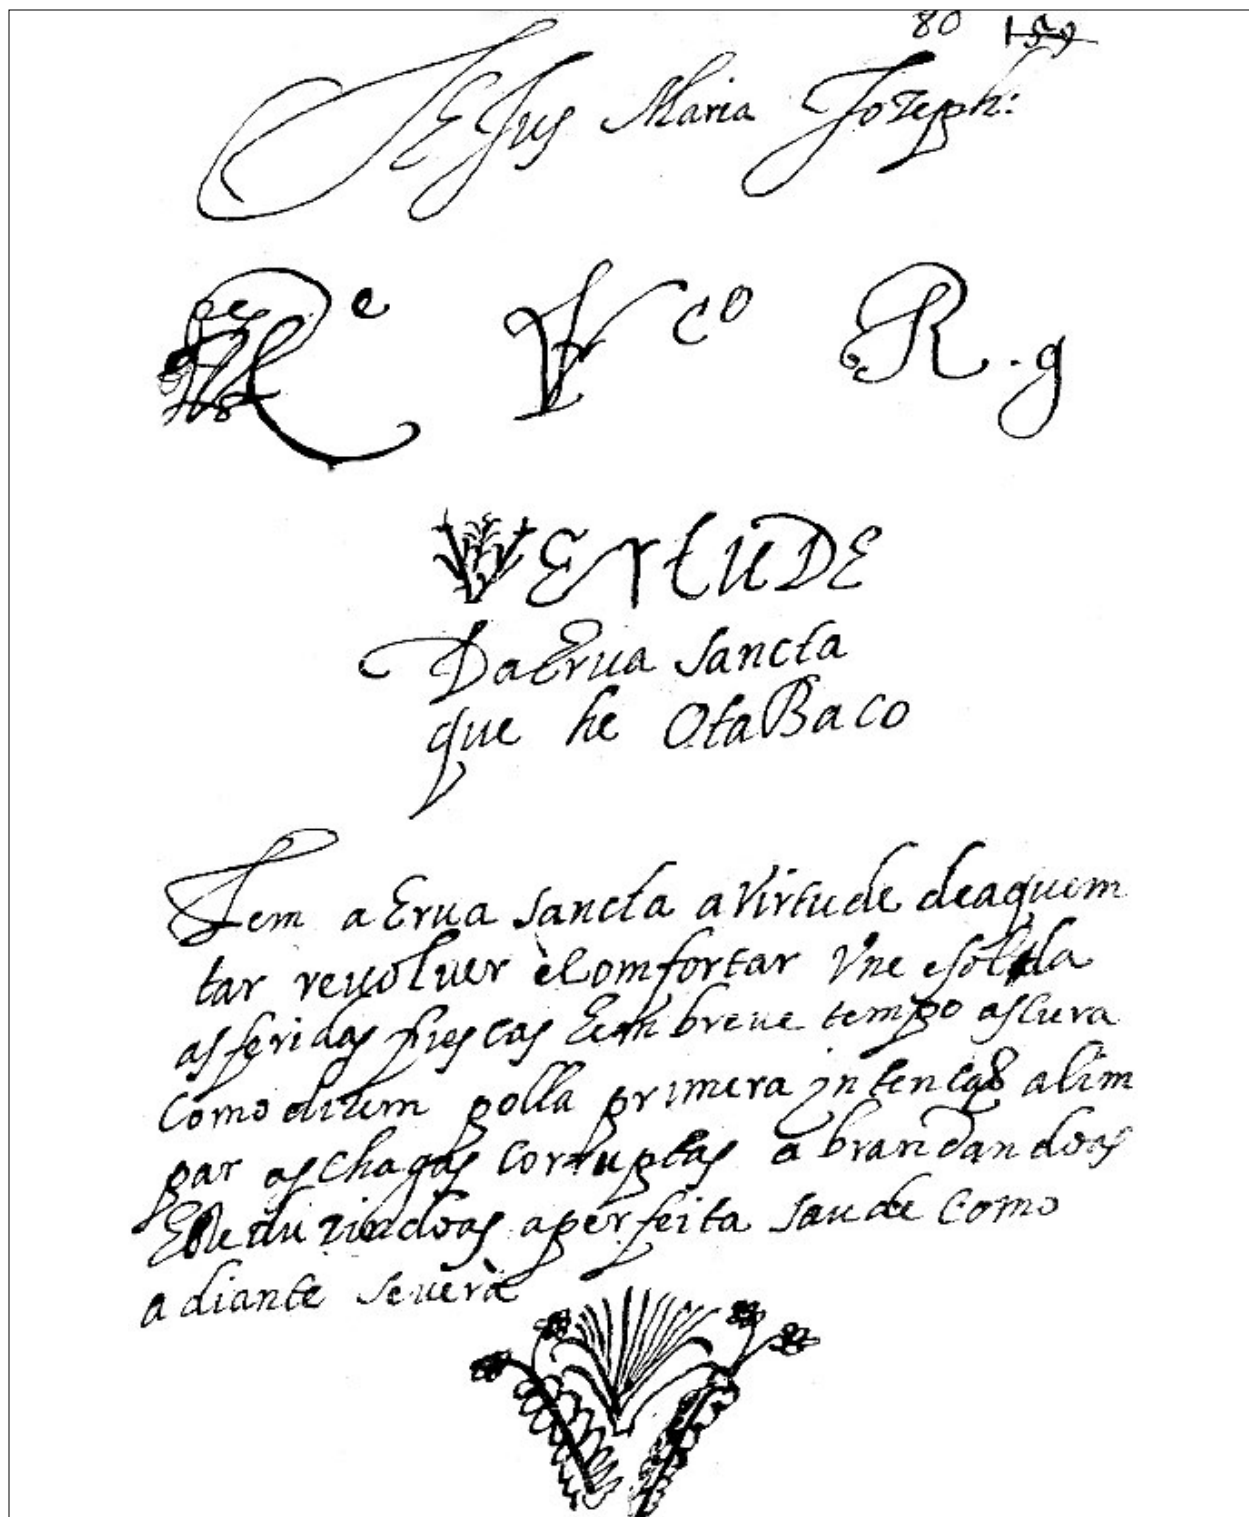 80 159
JESus Maria Jozeph:
R e Fr co R . g
VERtuDE
Da Erua sancta
que he OtaBaco
Tem a Erua sancta a virtude deaquem
tar revoluer è Comfortar Vne esolda
asferidas frescas Eem breue tempo ascura
Como dizem polla primera jntencaõ alim
par aschagas Corruptas abrandandoas
EReduzindoas aperfeita saude Como
adiante severà